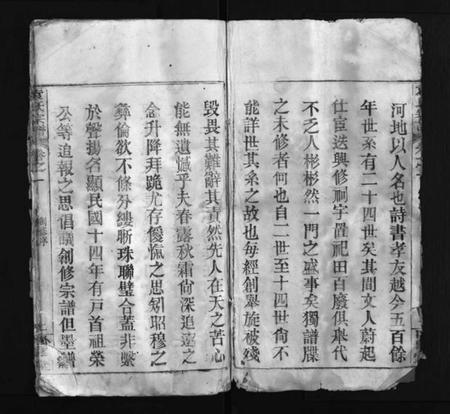 河地以人名也詩書孝友越今五百餘
年世系有二十四世矣其間文人蔚起
仕宦迭興修祠宇置祀田百廢俱舉代
不乏人彬彬然一門之盛事矣獨譜牒
之未修者何也自二世至十四世尙不
能詳世其系之故也每經創舉旋被殘
毀畏其難辭其責然先人在天之苦心
能無遺憾乎夫春露秋霜尙深追遠之
念升降拜跪尤存僾愾之思矧昭穆之
彝倫欲不條分縷晰珠聯璧合蓋非繫
於聲揚名顯民國十四年有戸首祖榮
公等追報之思倡議創修宗譜但墨譜